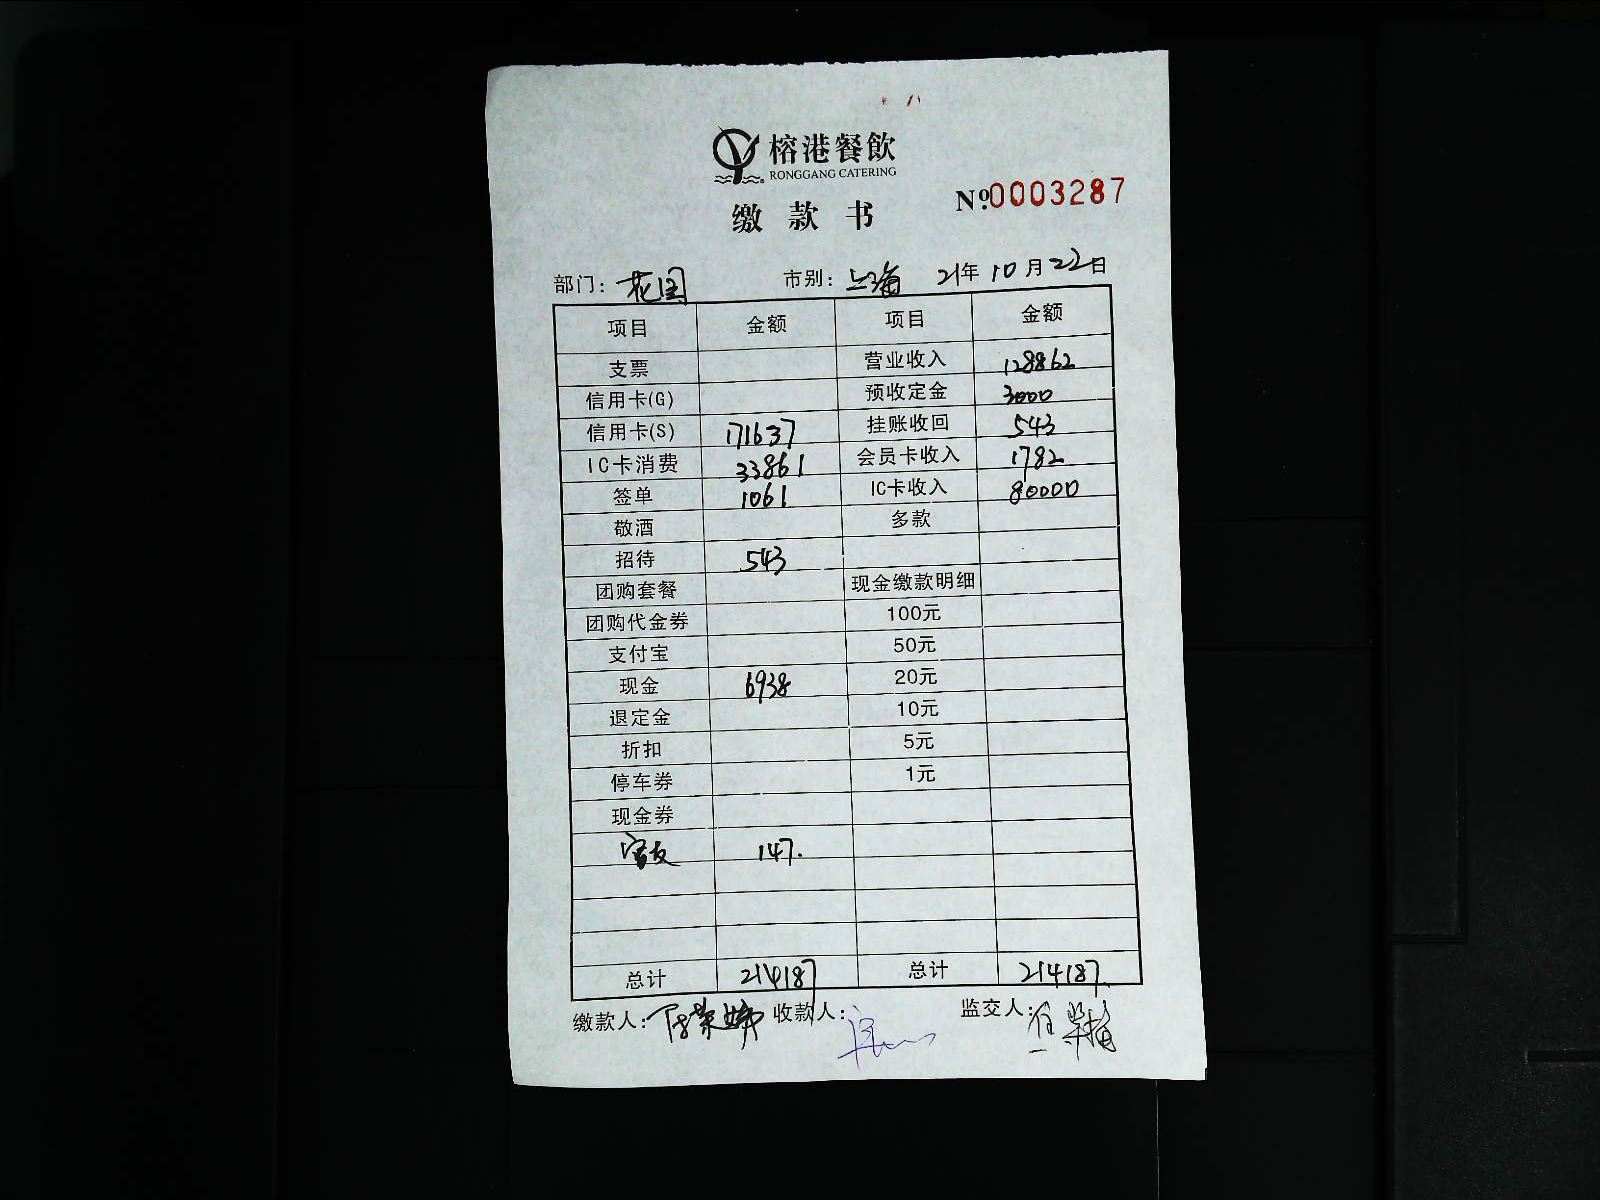 榕港餐飲
RONGGANG CATERING
缴款书
№0003287
部门：花园 市别：上海 21年10月22日
项目 金额 项目 金额
支票 营业收入 128862
信用卡(G) 预收定金 3000
信用卡(S) 171637 挂账收回 543
IC卡消费 33861 会员卡收入 1782
签单 1061 IC卡收入 80000
敬酒 多款
招待 543
团购套餐 现金缴款明细
团购代金券 100元
支付宝 50元
现金 6938 20元
退定金 10元
折扣 5元
停车券 1元
现金券
147.
总计 214187 总计 214187.
缴款人： 收款人： 监交人：